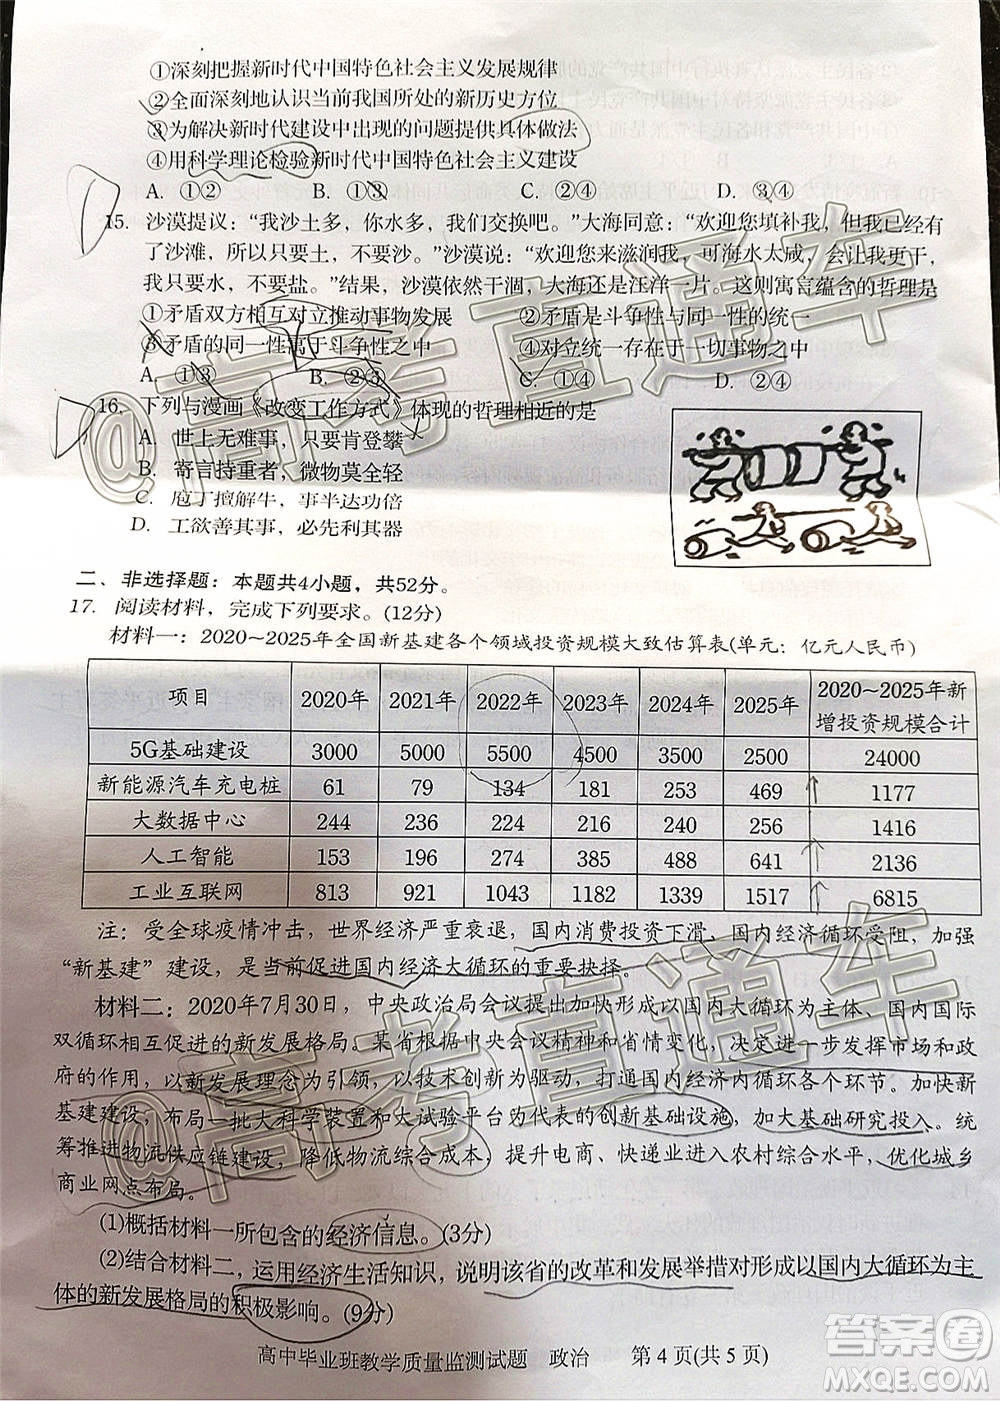 ①深刻把握新时代中国特色社会主义发展规律
②全面深刻地认识当前我国所处的新历史方位
③为解决新时代建设中出现的问题提供具体做法
④用科学理论检验新时代中国特色社会主义建设
A. ①② B. ①③ C. ②④ D. ③④
15. 沙漠提议：“我沙土多，你水多，我们交换吧。”大海同意：“欢迎您填补我，但我已经有
了沙滩，所以只要土，不要沙。”沙漠说：“欢迎您来滋润我，可海水太咸，能不能
我只要水，不要盐。”结果，沙漠依然干涸，大海还是汪洋一片。这则寓言蕴含的哲理是
①矛盾双方相互对立推动事物发展 ②矛盾是斗争性与同一性的统一
③矛盾的同一性寓于斗争性之中 ④对立统一存在于一切事物之中
A. ①③ B. ②③ C. ①④ D. ②④
16. 下列与漫画《改变工作方式》体现的哲理相近的是
A. 世上无难事，只要肯登攀
B. 寄言持重者，微物莫全轻
C. 庖丁擅解牛，事半达功倍
D. 工欲善其事，必先利其器
二、非选择题：本题共4小题，共52分。
17. 阅读材料，完成下列要求。(12分)
材料一：2020~2025年全国新基建各个领域投资规模大致估算表(单元：亿元人民币)
项目 2020年 2021年 2022年 2023年 2024年 2025年 2020~2025年新
增投资规模合计
5G基础建设 3000 5000 5500 4500 3500 2500 24000
新能源汽车充电桩 61 79 134 181 253 469 1177
大数据中心 244 236 224 216 240 256 1416
人工智能 153 196 274 385 488 641 2136
工业互联网 813 921 1043 1182 1339 1517 6815
注：受全球疫情冲击，世界经济严重衰退，国内消费投资下滑，国内经济循环受阻，加强
“新基建”建设，是当前促进国内经济大循环的重要抉择。
材料二：2020年7月30日，中央政治局会议提出加快形成以国内大循环为主体、国内国际
双循环相互促进的新发展格局。某省根据中央会议精神和省情变化，决定进一步发挥市场和政
府的作用，以新发展理念为引领，以技术创新为驱动，打通国内经济内循环各个环节。加快新
基建建设，布局一批大科学装置和大试验平台为代表的创新基础设施，加大基础研究投入。统
筹推进物流供应链建设，降低物流综合成本，提升电商、快递业进农村综合水平，优化城乡
商业网点布局。
(1)概括材料一所包含的经济信息。(3分)
(2)结合材料二，运用经济生活知识，说明该省的改革和发展举措对形成以国内大循环为主
体的新发展格局的积极影响。(9分)
高中毕业班教学质量监测试题 政治 第4页(共5页)
@高考直通车
@高考直通车
答案圈
MXQE.COM